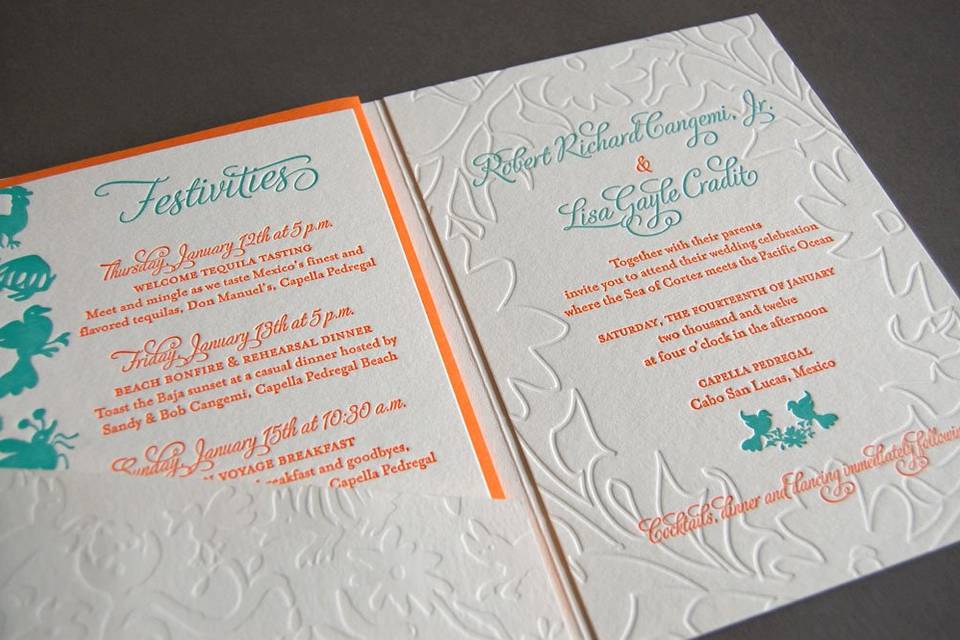 Festivities
Thursday, January 12th at 5 p.m.
WELCOME TEQUILA TASTING
Meet and mingle as we taste Mexico's finest and
flavored tequilas, Don Manuel's, Capella Pedregal
Friday, January 13th at 5 p.m.
BEACH BONFIRE & REHEARSAL DINNER
Toast the Baja sunset at a casual dinner hosted by
Sandy & Bob Cangemi, Capella Pedregal Beach
Sunday, January 15th at 10:30 a.m.
VOYAGE BREAKFAST
breakfast and goodbyes,
Capella Pedregal
Robert Richard Cangemi, Jr.
&
Lisa Gayle Cradit
Together with their parents
invite you to attend their wedding celebration
where the Sea of Cortez meets the Pacific Ocean
SATURDAY, THE FOURTEENTH OF JANUARY
two thousand and twelve
at four o'clock in the afternoon
CAPELLA PEDREGAL
Cabo San Lucas, Mexico
Cocktails, dinner and dancing immediately following